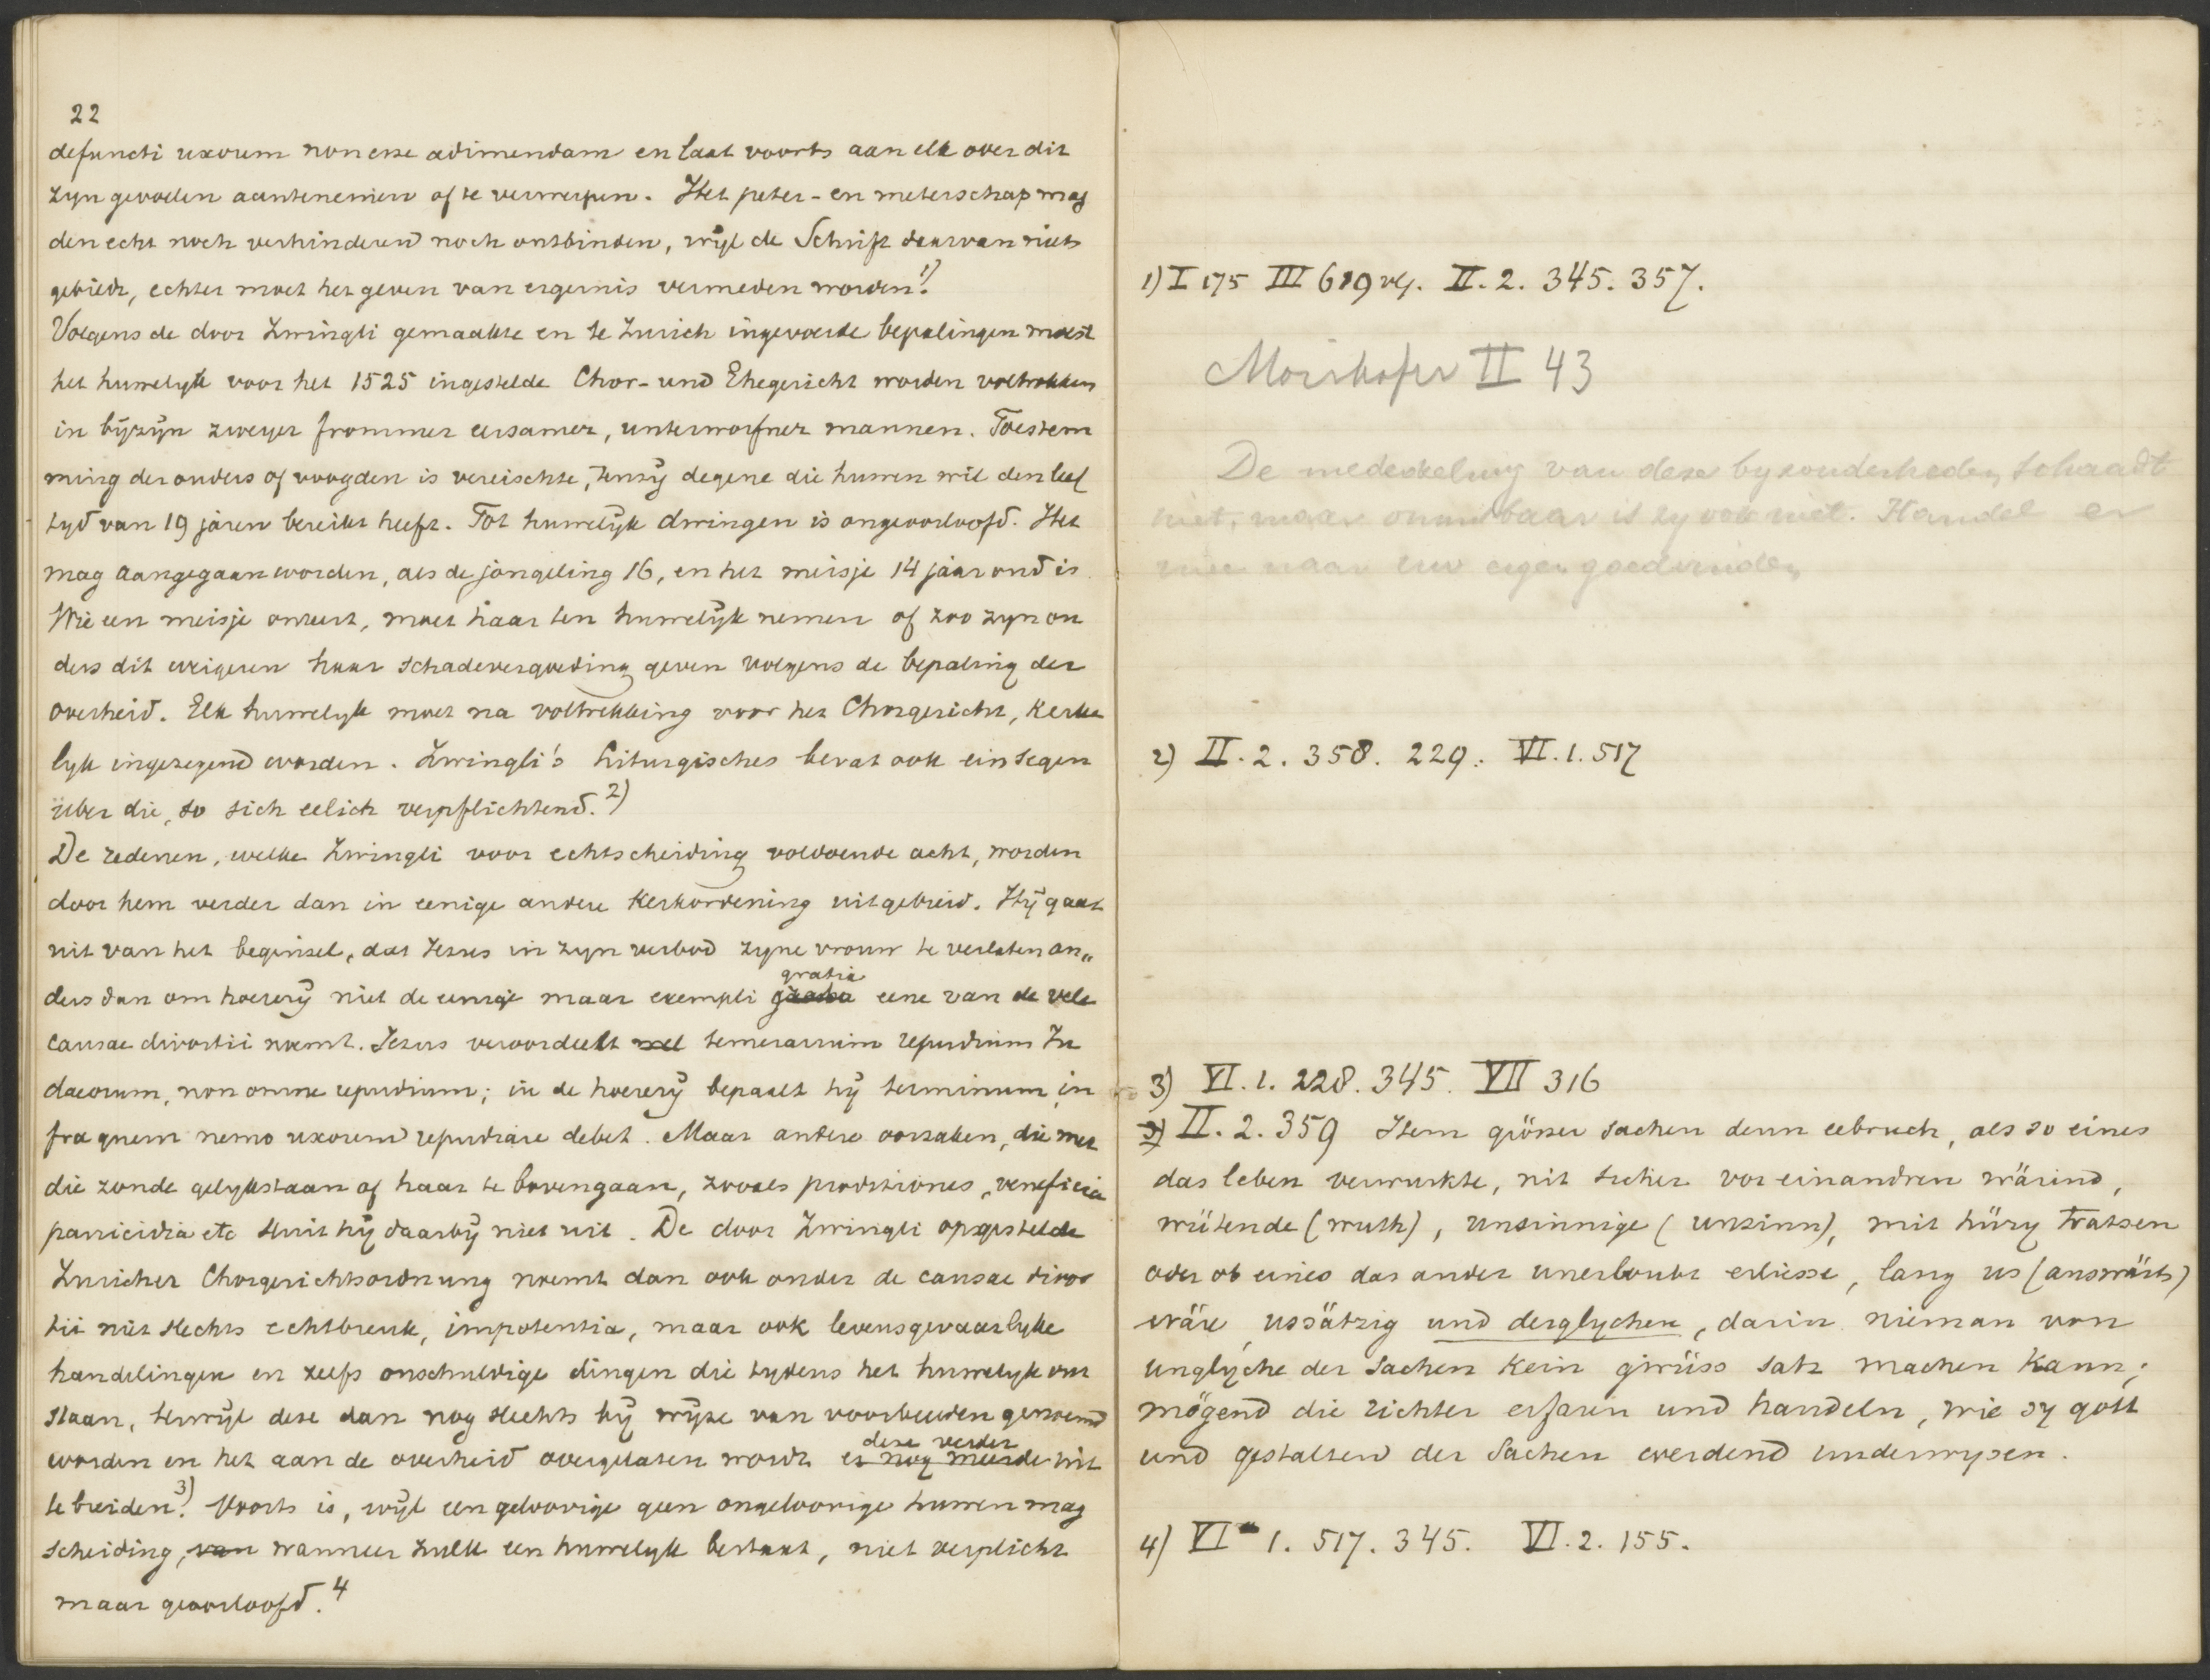 22
defuncti uxorem non esse adimendam en laat voorts aan elk over dit
zyn gevoelen aantenemen of te verwerpen. Het peter- en meterschap mag
den echt noch verhinderen noch ontbinden, wijl de Schrift daarvan niets
gebiedt, echter moet het geven van ergernis vermeden worden.1)
Volgens de door Zwingli gemaakte en te Zurich ingevoerde bepalingen moest
het huwelyk voor het 1525 ingestelde Chor- und Ehegericht worden voltrokken
in bijzijn zweyer frommer eersamer, unterworfner mannen. Toestem
ming der ouders of voogden is vereischte, tenzij degene die huwen wil den leef
tyd van 19 jaren bereikt heeft. Tot huwelijk dwingen is ongeoorloofd. Het
mag aangegaan worden, als de jongeling 16, en het meisje 14 jaar oud is.
Wie een meisje onteert, moet haar ten huwelijk nemen of zoo zyn ou
ders dit weigeren haar schadevergoeding geven volgens de bepaling der
overheid. Elk huwelyk moet na voltrekking voor het Chorgericht, kerke
lyk ingezegend worden. Zwingli's Liturgisches bevat ook ein segen
über die, so sich eelich verpflichtend.2)
De redenen, welke Zwingli voor echtscheiding voldoende acht, worden
door hem verder dan in eenige andere Kerkordening uitgebreid. Hij gaat
uit van het beginsel, dat Jezus in zyn verbod zyne vrouw te verlaten an„
ders dan om hoererij niet de eenige maar exempli gratia eene van de vele
causae divortii noemt. Jezus veroordeelt wel temerarium repudium Ju
daeorum, non omne repudium; in de hoererij bepaalt hij terminum in
fra quem nemo uxorem repudiare debet. Maar andere oorzaken, die met
die zonde gelykstaan of haar te bovengaan, zooals proditiones, veneficia
parricidia etc sluit hij daarbij niet uit. De door Zwingli opgestelde
Zuricher Chorgerichtsordnung noemt dan ook onder de causae divor
tii niet slechts echtbreuk, impotentia, maar ook levensgevaarlyke
handelingen en zelfs onschuldige dingen die tydens het huwelyk ont
staan, terwijl deze dan nog slechts bij wijze van voorbeelden genoemd
worden en het aan de overheid overgelaten wordt er nog meerde deze verder uit
te breiden.3) Voorts is, wijl een geloovige geen ongeloovige huwen mag
scheiding, van wanneer zulk een huwelyk bestaat, niet verplicht
maar geoorloofd.4
1) I 175 III 619 vlg. II. 2. 345. 357.
Mörikofer II 43
De mededeeling van deze byzonderheden schaadt
niet, maar onmisbaar is zy ook niet. Handel er
mee naar uw eigen goedvinden
2) II. 2. 358. 229. VI. 1. 517
3) VI. 1. 228. 345. VII 316
3) II. 2. 359 Item grösser sachen denn eebruch, als so eines
das leben verwurkte, nit sicher vor einandren wärind,
wütende (wuth), unsinnige (unsinn), mit hüry tratzen
oder ob eines das ander unerloubt erliesse, lang us (auswärts)
wäre, ussätzig und derglychen, darin nieman von
unglyche der sachen kein gwüss satz machen kann;
mögend die richter erfaren und handeln, wie sy gott
und gestalten der Sachen werdend underwysen.
4) VI 1. 517. 345. VI. 2. 155.